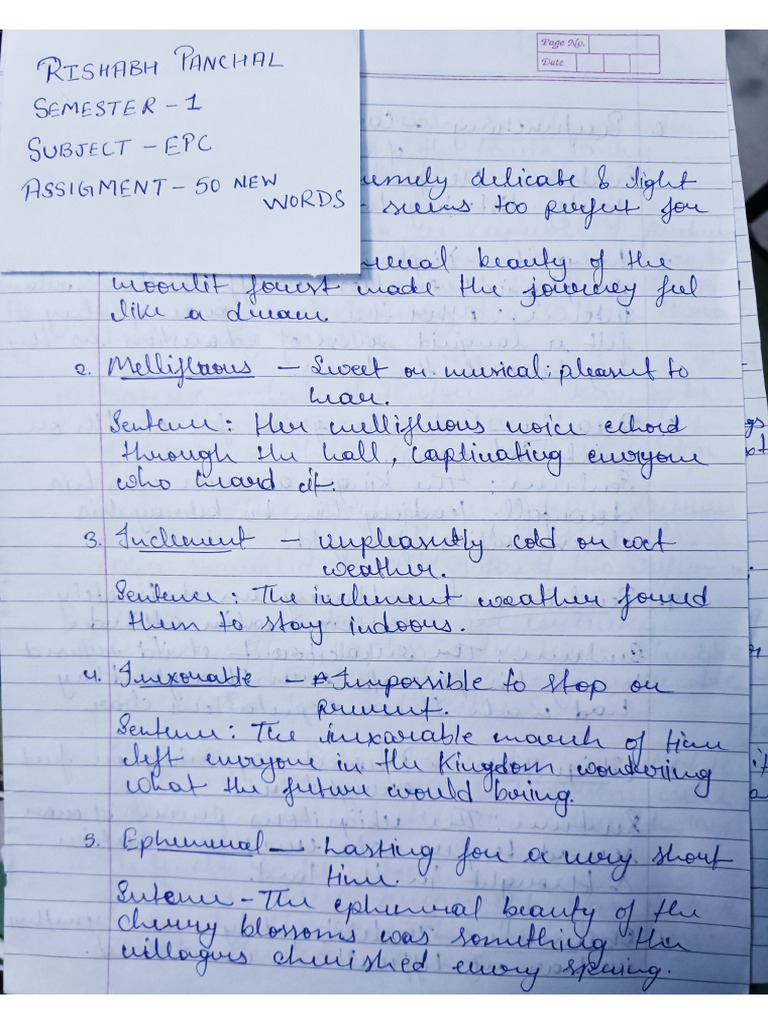 RISHABH PANCHAL
SEMESTER - 1
SUBJECT - EPC
ASSIGMENT - 50 NEW
WORDS
Page No.
Date
delicate & light
seems too perfect for
beauty of the
moonlit forest made the journey feel
like a dream.
2. Mellifluous - Sweet or musical; pleasant to
hear.
Sentence: Her mellifluous voice echod
through the hall, captivating everyone
who heard it.
3. Inclement - unpleasantly cold or wet
weather.
Sentence: The inclement weather forced
them to stay indoors.
4. Inexorable - Impossible to stop or
prevent.
Sentence: The inexorable march of time
left everyone in the Kingdom wondering
what the future would bring.
5. Ephemeral - Lasting for a very short
time.
Sentence - The ephemeral beauty of the
cherry blossoms was something the
villagers cherished every spring.